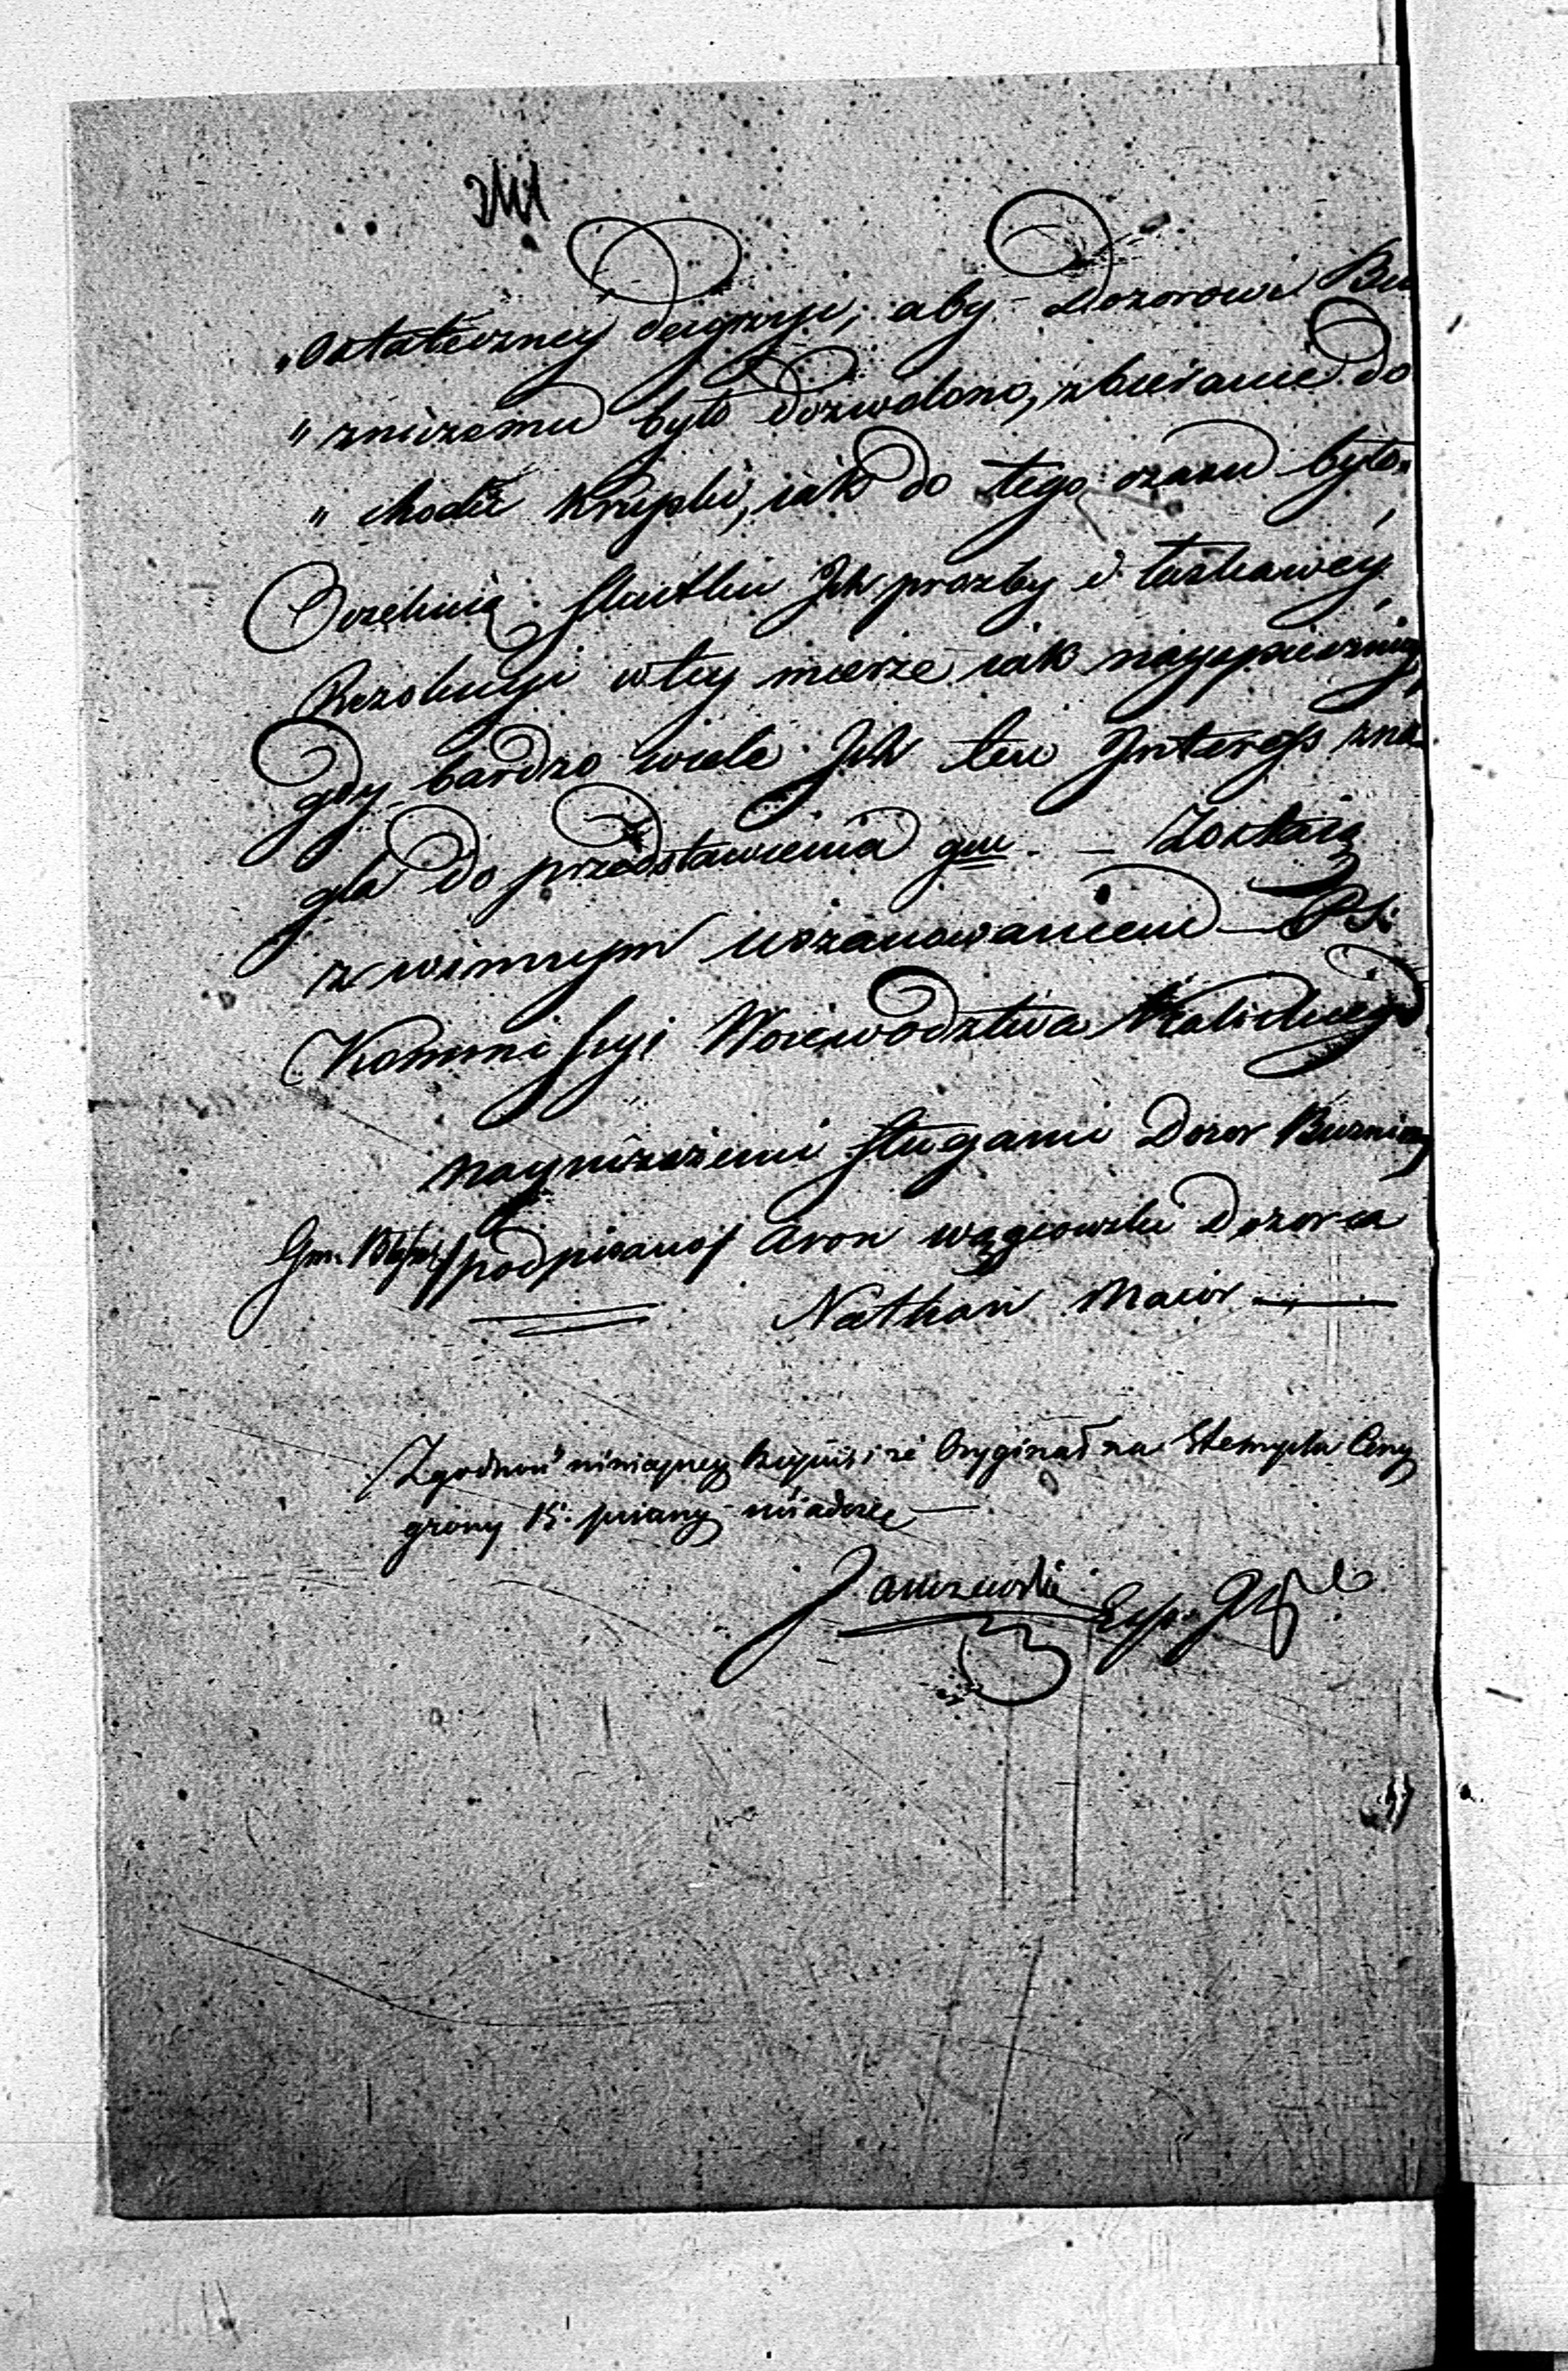 „Ostateczney decyzyi; aby Dozorowi Bu
„ zniczemu było dozwolono, zbieranie do
„ chodu Krupki, iak do tego czasu było„
Oczekuią skutku Ich prozby i łaskawey
Rezolucyi w tey mierze iak nayspieszniey,
gdy bardzo wiele Ich ten Interess zna
gla do przedstawienia go. — Zostaią
z winnym uszanowaniem — P. K.
Kommissyi Woiewodztwa Kaliskiego
nayniższemi sługami Dozor Buzniczy
Gm. /podpisano/ Aron Wągrowski Dozorca
Nathan Maior —
Zgodność ninieyszey kopii i że Oryginał na Stemplu Ceny
groszy 15. pisany świadczę —
Janiszewski